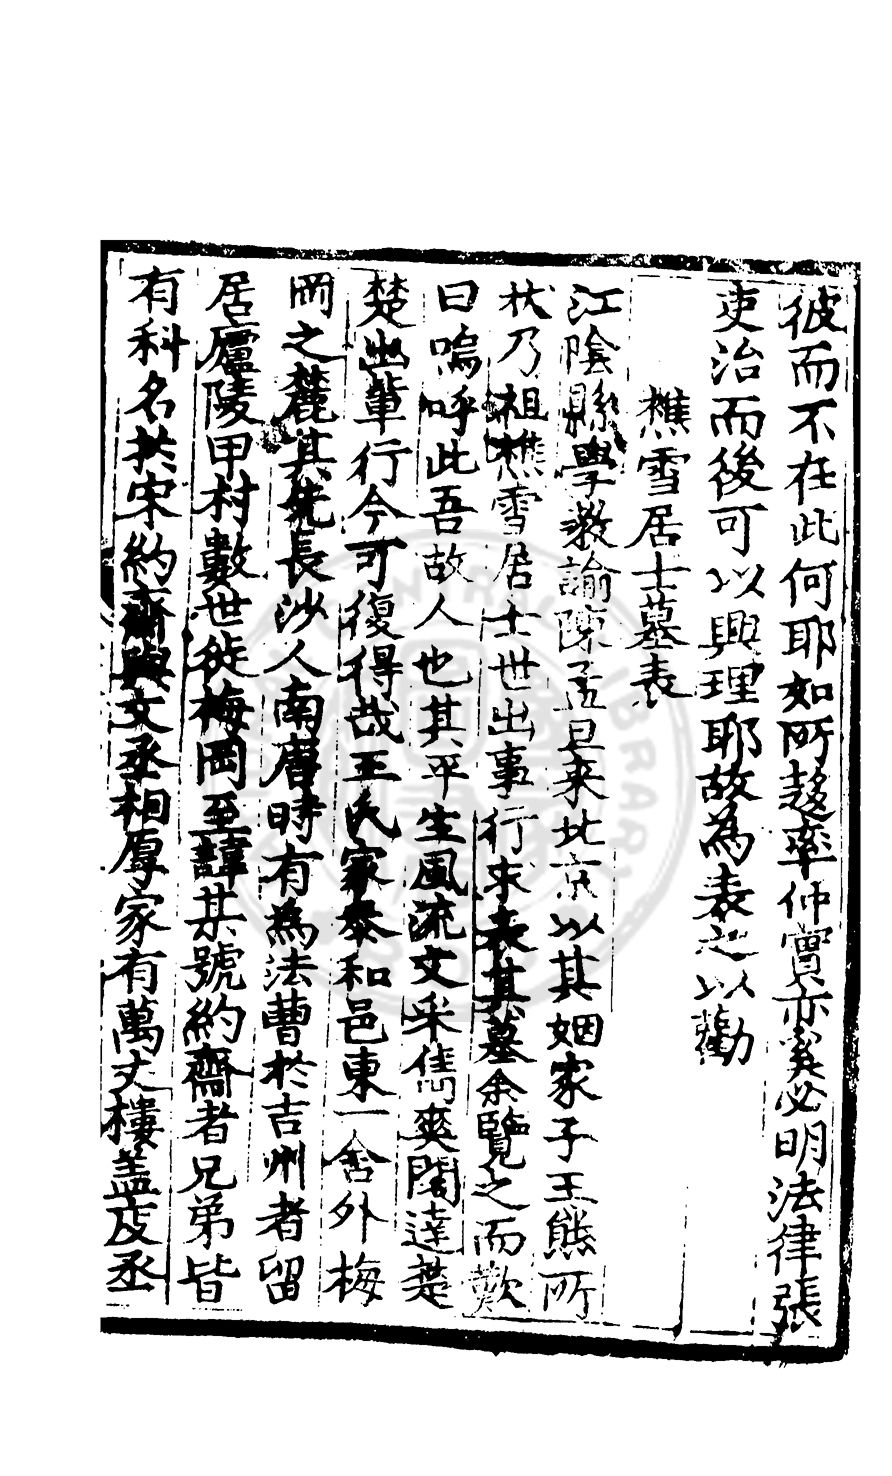 彼而不在此何耶如所趍率仲實亦奚必明法律張
吏治而後可以興理耶故為表之以勸
樵雪居士墓表
江陰縣學教諭陳孟旦来北京以其姻家子王熊所
狀乃祖樵雪居士世出事行求表其墓余覽之而歎
曰嗚呼此吾故人也其平生風流文采雋爽闊達楚
楚出輩行今可復得哉王氏家泰和邑東一舍外梅
岡之麓其先長沙人南唐時有為法曹於吉州者留
居廬陵甲村數世徙梅岡至諱某號約齋者兄弟皆
有科名於宋約齋與文丞相厚家有萬丈樓盖虔丞
CENTRAL LIBRARY